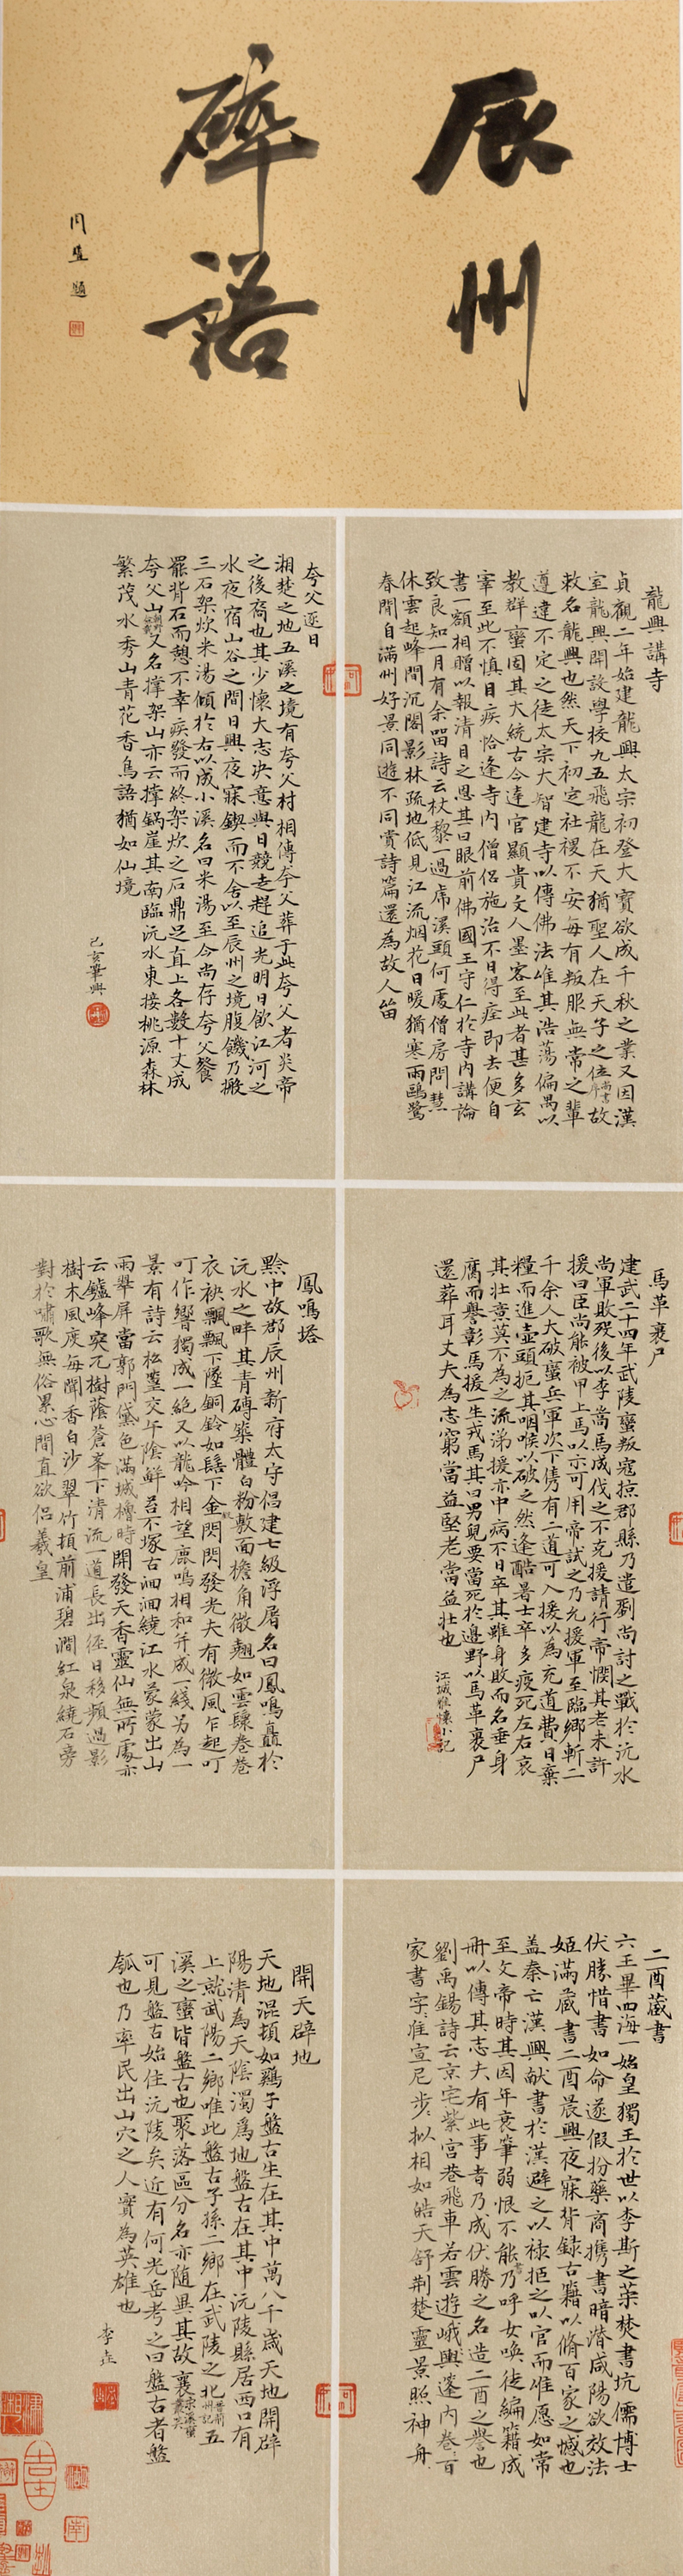 辰州
碎語
周 題
龍興講寺
貞觀二年始建龍興太宗初登大寶欲成千秋之業又因漢
室龍興開設學校九五飛龍在天猶聖人在天子之位尚書序故
敕名龍興也然天下初定社稷不安每有叛服無常之輩
遵達不定之徒太宗大智建寺以傳佛法唯其浩蕩偏禺以
教群蠻固其大統古今達官顯貴文人墨客至此者甚多玄
宰至此不慎目疾恰逢寺內僧侶施治不日得痊即去便自
書一額相贈以報清目之恩其曰眼前佛國王守仁於寺內講論
致良知一月有余留詩云杖藜一過虎溪頭何處僧房問慧
休雲起峰間沉閣影林疏地低見江流烟花日暖猶寒雨鷗鷺
春閒自滿州好景同遊不同賞詩篇還為故人留
夸父逐日
湘楚之地五溪之境有夸父村相傳夸父葬于此夸父者炎帝
之後裔也其少懷大志決意與日競走趕追光明日飲江河之
水夜宿山谷之間日興夜寐鍥而不舍以至辰州之境腹饑乃搬
三石架炊米湯傾於右以成小溪名曰米湯至今尚存夸父餐
罷背石而憩不幸疾發而終架炊之石鼎足直上各數十丈成
夸父山又名撑架山亦云撑鍋崖其南臨沅水東接桃源森林
繁茂水秀山青花香鳥語猶如仙境
己亥華興
馬革裹尸
建武二十四年武陵蠻叛寇掠郡縣乃遣劉尚討之戰於沅水
尚軍敗歿後以李嵩馬成伐之不克援請行帝憫其老未許
援曰臣尚能被甲上馬以示可用帝試之乃允援軍至臨鄉斬二
千余人大破蠻兵軍次下雋有二道可入援以為充道費日棄
糧而進壺頭扼其咽喉以破之然逢酷暑士卒多疫死左右哀
其壯意莫不為之流涕援亦中病不日卒其雖身敗而名垂身
腐而譽彰馬援一生戎馬其曰男兒要當死於邊野以馬革裹尸
還葬耳丈夫為志窮當益堅老當益壯也
江城雅懷小記
鳳鳴塔
黔中故郡辰州新府太守倡建七級浮屠名曰鳳鳴矗於
沅水之畔其青磚築體白粉敷面檐角微翹如雲騾卷卷
衣袂飄飄下墜銅鈴如鬍下金閃閃發光夫有微風乍起叮
叮作響獨成一絕又以龍吟相望鹿鳴相和并成一綫另為一
景有詩云松蘯交午陰鮮若不塚古洄洄繞江水蒙蒙出山
雨舉屏當郭門黛色滿城櫓時開發天香靈仙無所處亦
云鑪峰突兀樹蔭蒼峯下清流一道長出徑日移頻過影
樹木風度每聞香白沙翠竹頓前浦碧澗紅泉繞石旁
對於嘯歌無俗累心閒直欲侶羲皇
二酉藏書
六王畢四海一始皇獨王於世以李斯之策焚書坑儒博士
伏勝惜書如命遂假扮藥商携書暗潜咸陽欲效法
姬滿藏書二酉晨興夜寐背録古籍以脩百家之憾也
蓋秦亡漢興献書於漢避之以祿拒之以官而惟愿如常
至文帝時其因年衰筆弱恨不能書乃呼女喚徒編籍成
冊以傳其志夫有此事者乃成伏勝之名造二酉之譽也
劉禹錫詩云京宅紫宮巷飛車若雲遊峨輿蓬內卷百
家書字准宣尼步擬相如皓天舒荆楚靈景照神舟
開天辟地
天地混頓如鷄子盤古生在其中萬八千歲天地開辟
陽清為天陰濁為地盤古在其中沅陵縣居西口有
上就武陽二鄉唯此盤古子孫二鄉在武陵之北五
溪之蠻皆盤古也聚落區分名亦隨異其故襄
可見盤古始住沅陵矣近有何光岳考之曰盤古者盤
瓠也乃率民出山穴之人實為英雄也
李垚